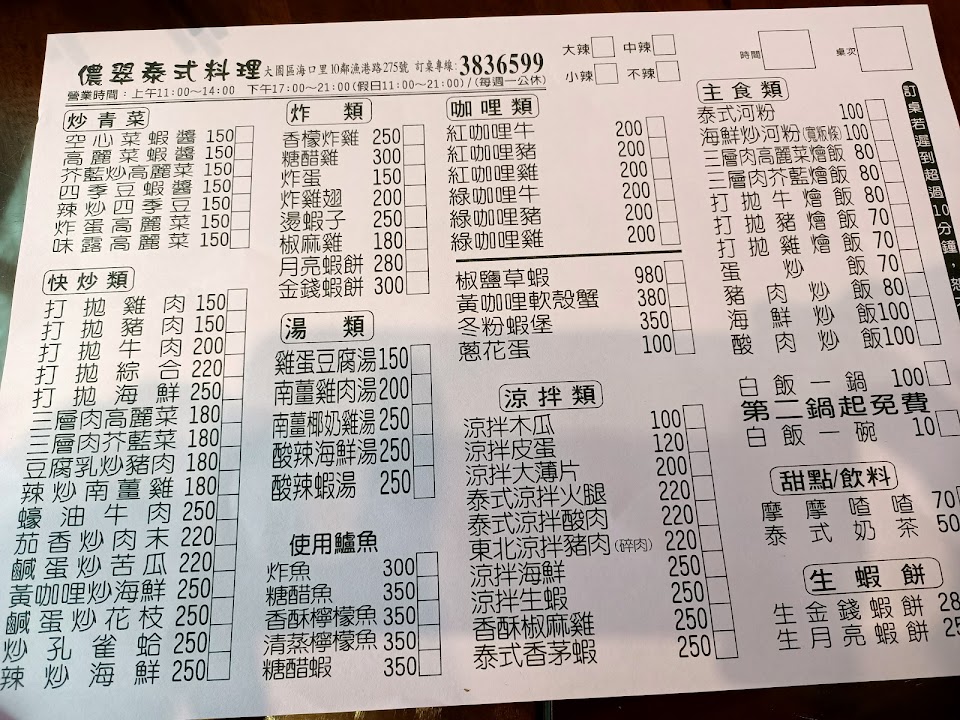 儂翠泰式料理 大園區海口里10鄰漁港路275號 訂桌專線:3836599
營業時間:上午11:00~14:00 下午17:00~21:00(假日11:00~21:00)/(每週一公休)
大辣 中辣
小辣 不辣
時間 桌次
炒青菜
空心菜蝦醬 150
高麗菜蝦醬 150
芥藍炒高麗菜 150
四季豆蝦醬 150
辣炒四季豆 150
炸蛋高麗菜 150
味露高麗菜 150
快炒類
打拋雞肉 150
打拋豬肉 150
打拋牛肉 200
打拋綜合 220
打拋海鮮 250
三層肉高麗菜 180
三層肉芥藍菜 180
豆腐乳炒豬肉 180
辣炒南薑雞 180
蠔油牛肉 250
茄香炒肉末 220
鹹蛋炒苦瓜 220
黃咖哩炒海鮮 250
鹹蛋炒花枝 250
炒孔雀蛤 250
辣炒海鮮 250
炸類
香檬炸雞 250
糖醋雞 300
炸蛋 150
炸雞翅 200
燙蝦子 250
椒麻雞 180
月亮蝦餅 280
金錢蝦餅 300
湯類
雞蛋豆腐湯 150
南薑雞肉湯 200
南薑椰奶雞湯 250
酸辣海鮮湯 250
酸辣蝦湯 250
使用鱸魚
炸魚 300
糖醋魚 350
香酥檸檬魚 350
清蒸檸檬魚 350
糖醋蝦 350
咖哩類
紅咖哩牛 200
紅咖哩豬 200
紅咖哩雞 200
綠咖哩牛 200
綠咖哩豬 200
綠咖哩雞 200
椒鹽草蝦 980
黃咖哩軟殼蟹 380
冬粉蝦堡 350
蔥花蛋 100
涼拌類
涼拌木瓜 100
涼拌皮蛋 120
涼拌大薄片 200
泰式涼拌火腿 220
泰式涼拌酸肉 220
東北涼拌豬肉(碎肉) 220
涼拌海鮮 250
涼拌生蝦 250
香酥椒麻雞 250
泰式香茅蝦 250
主食類
泰式河粉 100
海鮮炒河粉(寬粄條) 100
三層肉高麗菜燴飯 80
三層肉芥藍燴飯 80
打拋牛燴飯 80
打拋豬燴飯 70
打拋雞燴飯 70
蛋炒飯 70
豬肉炒飯 80
海鮮炒飯 100
酸肉炒飯 100
白飯一鍋 100
第二鍋起免費
白飯一碗 10
甜點/飲料
摩摩喳喳 70
泰式奶茶 50
生蝦餅
生金錢蝦餅 28
生月亮蝦餅 25
訂桌若遲到超過10分鐘,恕